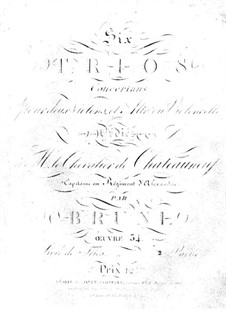 Six
TRIOS
Concertans
Pour deux Violons, et Alto ou Violoncelle
Dédiés
M. le Chevalier de Chateauneuf
Capitaine au Régiment
PAR
BRUNI
ŒUVRE 34
Livre de Trios 2 Partie
Prix